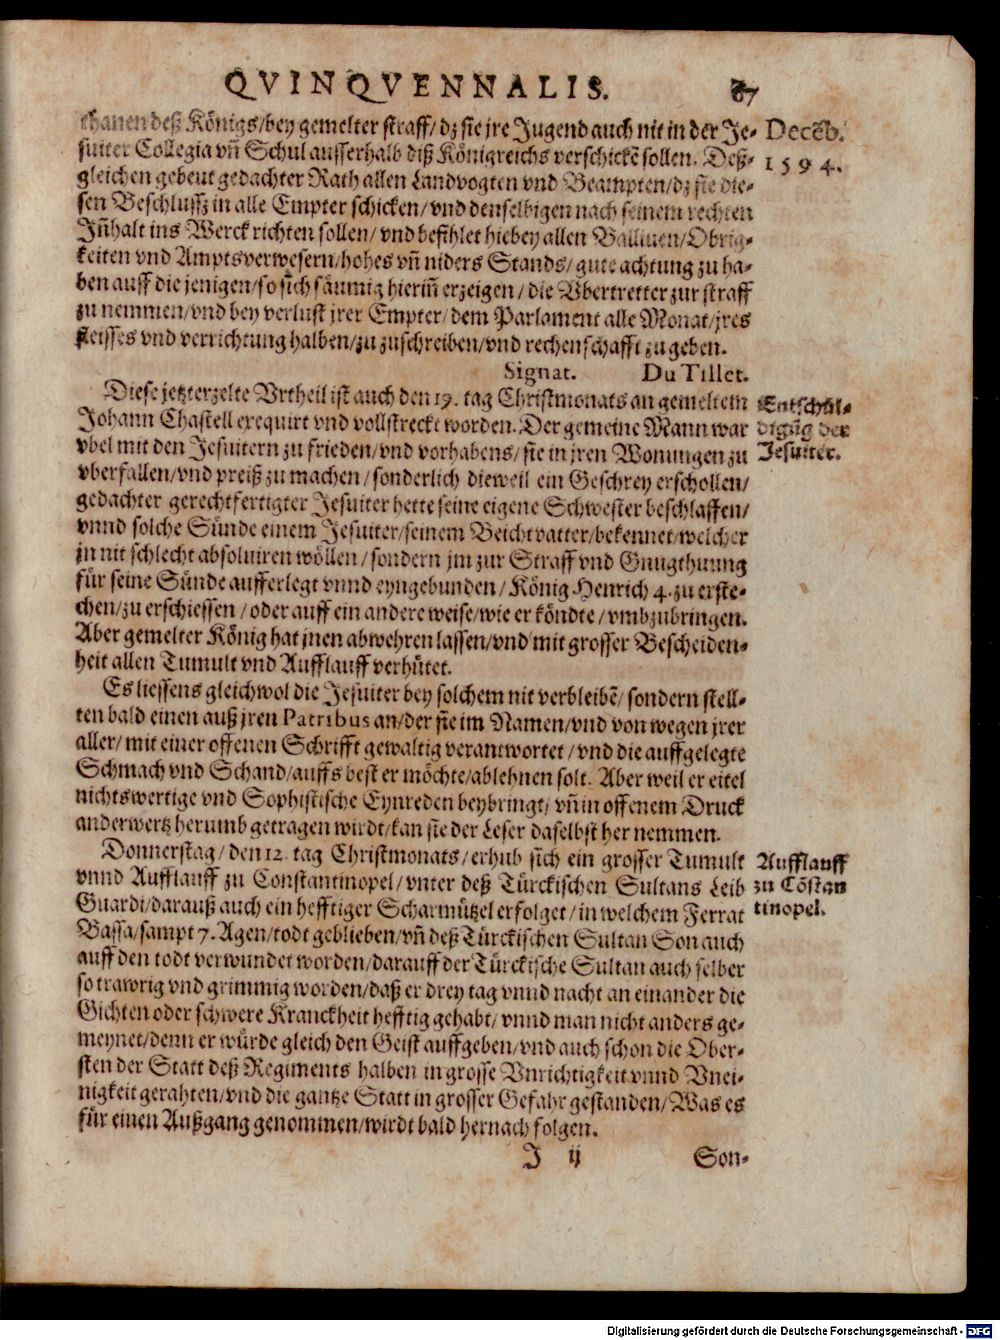 QVINQVENNALIS. 67
thanen deß Königs/bey gemelter straff/dz sie jre Jugend auch nit in der Je- Decẽb.
suiter Collegia vñ Schul ausserhalb diß Königreichs verschickẽ sollen. Deß- 1594.
gleichen gebeut gedachter Rath allen Landvogten vnd Beampten/dz sie die-
sen Beschlussz in alle Empter schicken/vnd denselbigen nach seinem rechten
Iñhalt ins Werck richten sollen/vnd befihlet hiebey allen Balliuen/Obrig-
keiten vnd Amptsverwesern/hohes vñ niders Stands/gute achtung zu ha-
ben auff die jenigen/so sich säumig hieriñ erzeigen/die Vbertretter zur straff
zu nemmen/vnd bey verlust jrer Empter/dem Parlament alle Monat/jres
fleisses vnd verrichtung halben/zu zuschreiben/vnd rechenschafft zu geben.
Signat. Du Tillet.
Diese jetzterzelte Vrtheil ist auch den 19. tag Christmonats an gemeltem Entschul-
Johann Chastell exequirt vnd vollstreckt worden. Der gemeine Mann war digũg der
vbel mit den Jesuitern zu frieden/vnd vorhabens/sie in jren Wonungen zu Jesuiter.
vberfallen/vnd preiß zu machen/sonderlich dieweil ein Geschrey erschollen/
gedachter gerechtfertigter Jesuiter hette seine eigene Schwester beschlaffen/
vnnd solche Sünde einem Jesuiter/seinem Beichtvatter/bekennet/welcher
jn nit schlecht absoluiren wöllen/sondern jm zur Straff vnd Gnugthuung
für seine Sünde aufferlegt vnnd eyngebunden/König Henrich 4. zu erste-
chen/zu erschiessen/oder auff ein andere weise/wie er köndte/vmbzubringen.
Aber gemelter König hat jnen abwehren lassen/vnd mit grosser Bescheiden-
heit allen Tumult vnd Aufflauff verhütet.
Es liessens gleichwol die Jesuiter bey solchem nit verbleibẽ/sondern stell-
ten bald einen auß jren Patribus an/der sie im Namen/vnd von wegen jrer
aller/mit einer offenen Schrifft gewaltig verantwortet/vnd die auffgelegte
Schmach vnd Schand/auffs best er möchte/ablehnen solt. Aber weil er eitel
nichtswertige vnd Sophistische Eynreden beybringt/vñ in offenem Druck
anderwertz herumb getragen wirdt/kan sie der Leser daselbst her nemmen.
Donnerstag/den 12. tag Christmonats/erhub sich ein grosser Tumult Aufflauff
vnnd Aufflauff zu Constantinopel/vnter deß Türckischen Sultans Leib zu Cõstan
Guardi/darauß auch ein hefftiger Scharmützel erfolget/in welchem Ferrat tinopel.
Bassa/sampt 7. Agen/todt geblieben/vñ deß Türckischen Sultan Son auch
auff den todt verwundet worden/darauff der Türckische Sultan auch selber
so trawrig vnd grimmig worden/daß er drey tag vnnd nacht an einander die
Gichten oder schwere Kranckheit hefftig gehabt/vnnd man nicht anders ge-
meynet/denn er würde gleich den Geist auffgeben/vnd auch schon die Ober-
sten der Statt deß Regiments halben in grosse Vnrichtigkeit vnnd Vnei-
nigkeit gerahten/vnd die gantze Statt in grosser Gefahr gestanden/Was es
für einen Außgang genommen/wirdt bald hernach folgen.
J ij Son-
Digitalisierung gefördert durch die Deutsche Forschungsgemeinschaft - DFG